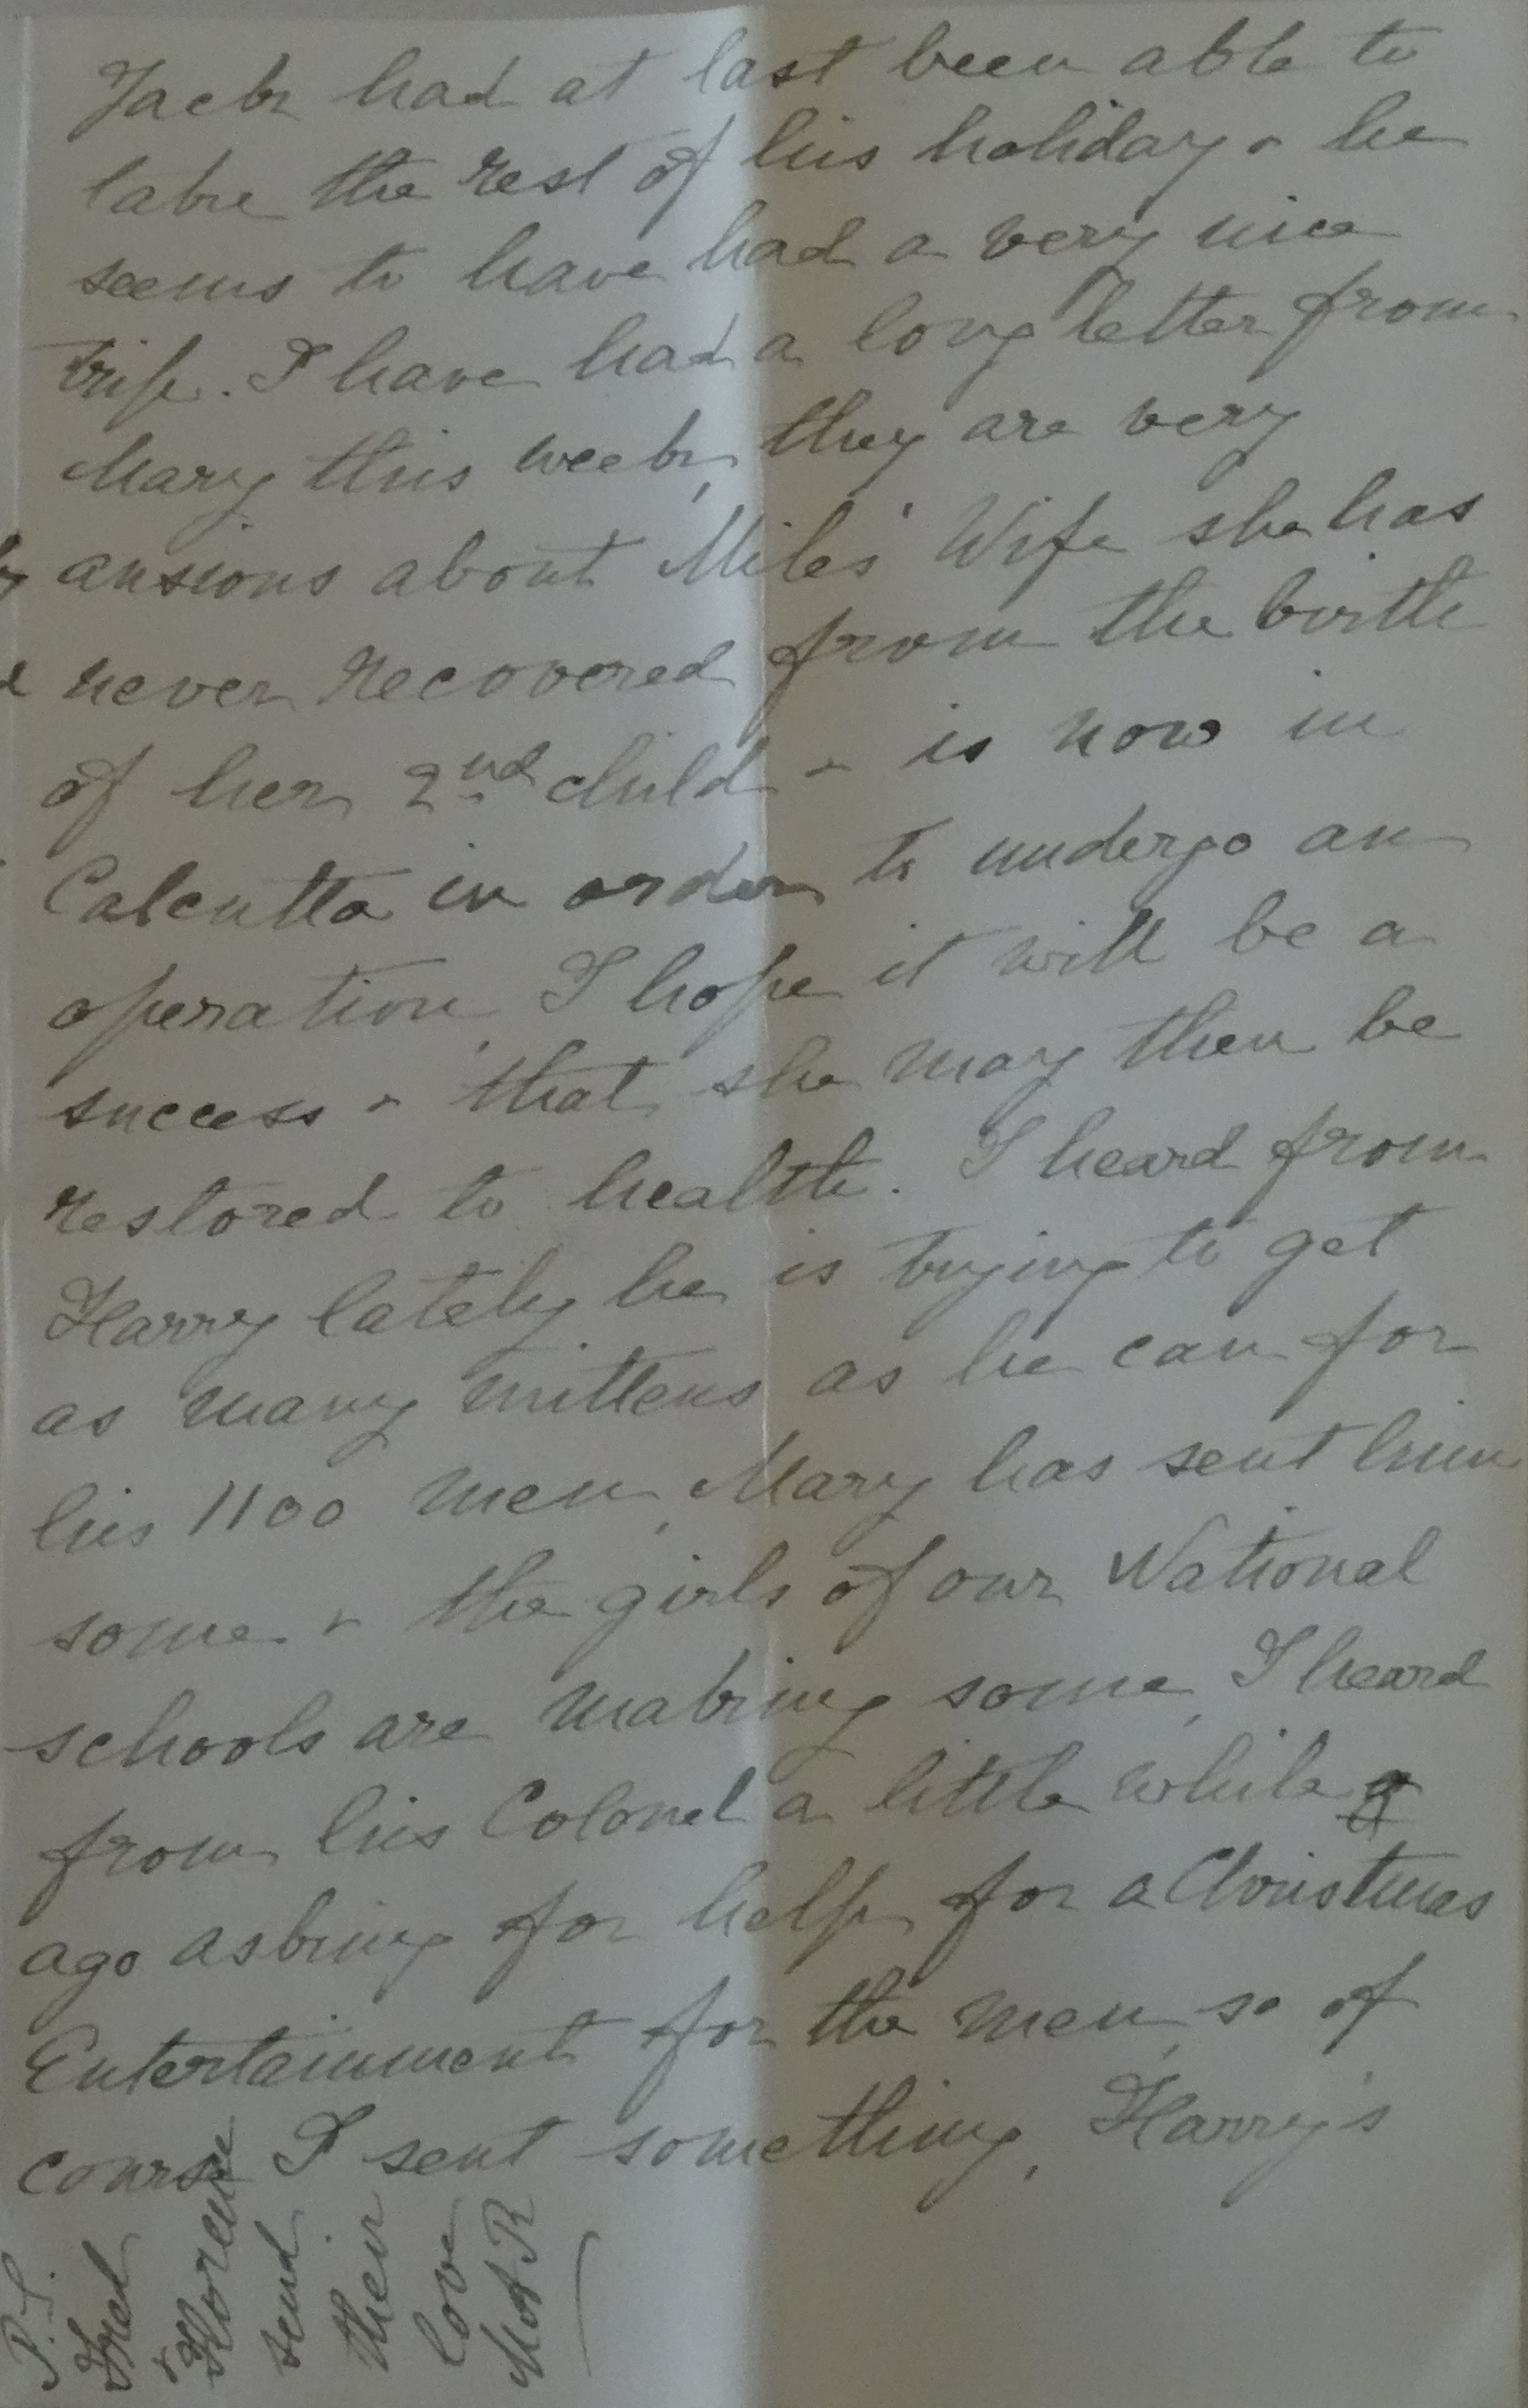 Jack had at last been able to
take the rest of his holiday & he
seems to have had a very nice
trip. I have had a long letter from
Mary this week, they are very
anxious about Miles' Wife she has
never recovered from the birth
of her 2nd child & is now in
Calcutta in order to undergo an
operation, I hope it will be a
success & that she may then be
restored to health. I heard from
Harry lately he is trying to get
as many mittens as he can for
his 1100 men, Mary has sent him
some & the girls of our National
schools are making some, I heard
from his Colonel a little while
ago asking for help for a Christmas
Entertainment for the men, so of
course I sent something, Harry's
P.S.
Fred
& Florence
send
their
love
MAR